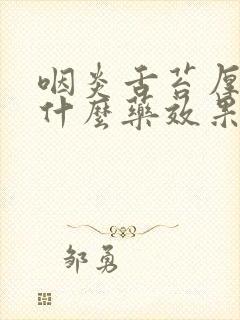 咽炎舌苔厚
什麼藥效果
邹勇